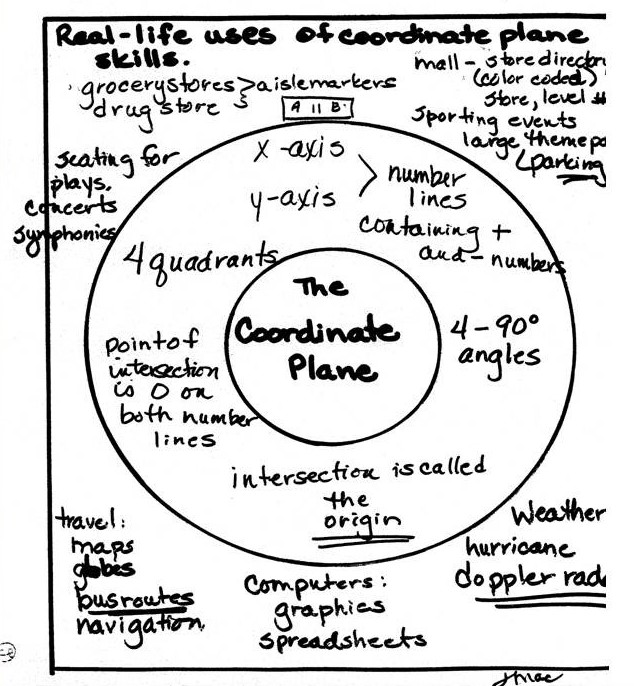 Real-life uses of coordinate plane
skills.
grocery stores > aislemarkers
drug store s
A 11 B
mall - store directory
(color coded)
store, level #
sporting events
large theme
parking
seating for
plays,
concerts
symphonies
x-axis
y-axis
number
lines
containing +
and - numbers
4 quadrants
The
Coordinate
Plane
4-90°
angles
point of
intersection
is 0 on
both number
lines
intersection is called
the
origin
travel:
maps
globes
bus routes
navigation
Computers:
graphics
spreadsheets
Weather
hurricane
doppler rada